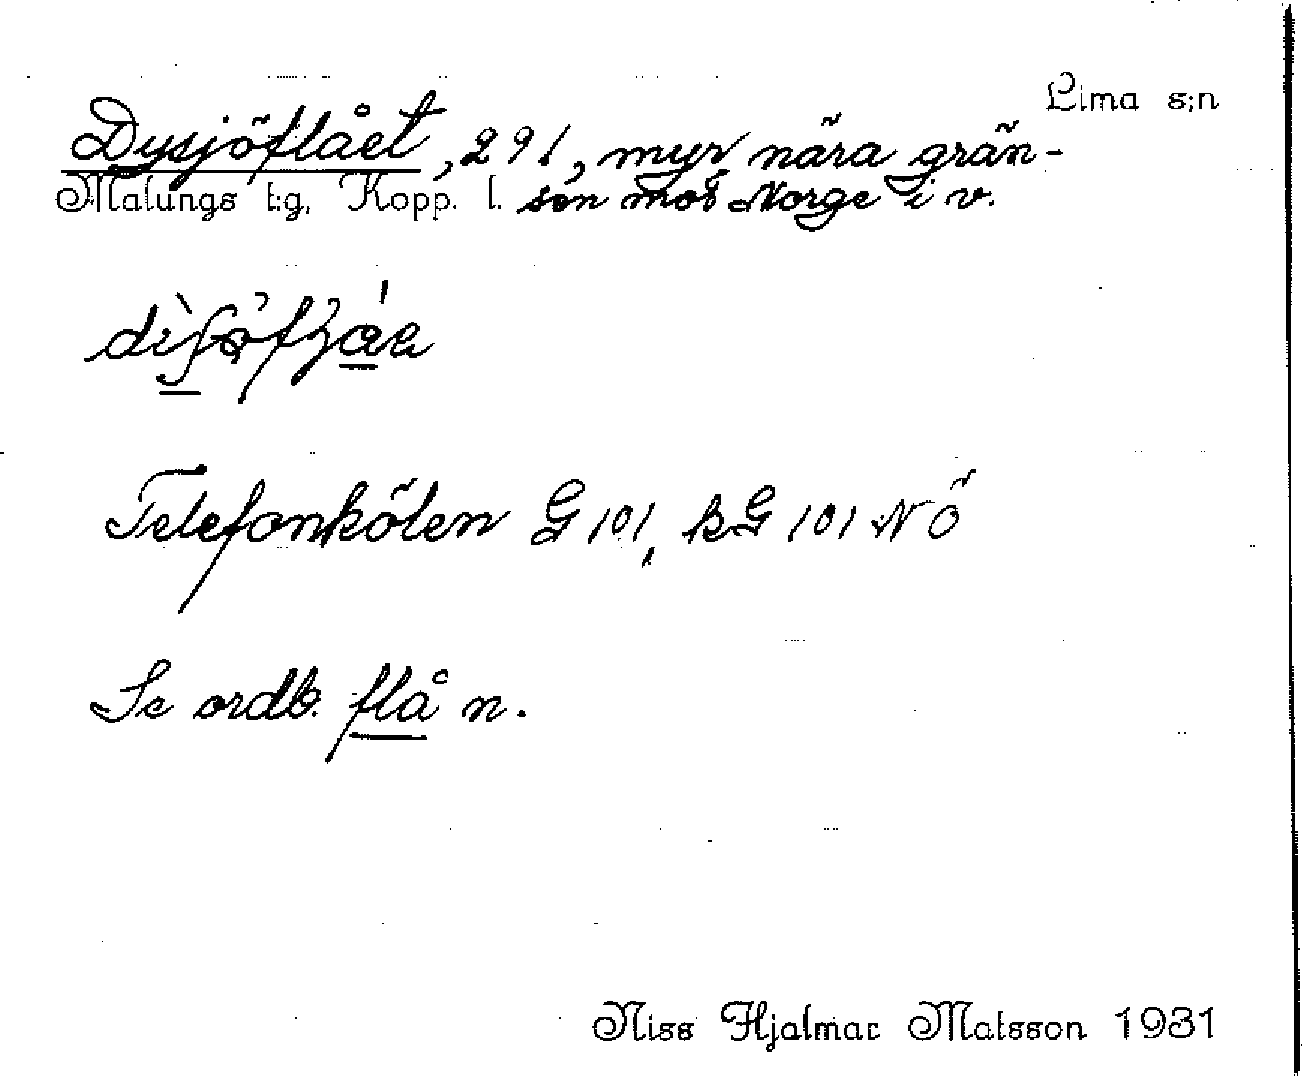 Lima s:n
Dysjöflået, 291, myr nära grän-
Malungs t:g, Kopp. l. sen mot Norge i v.
Telefonkölen G 101, kG 101 NÖ
Se ordb. flå n.
Niss Hjalmar Matsson 1931